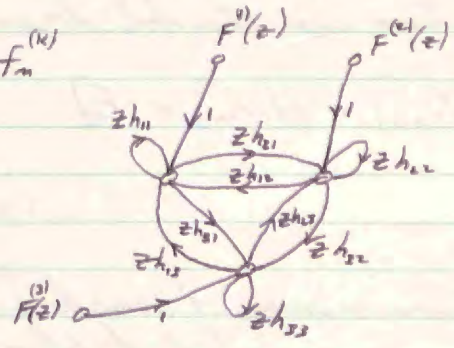 f_n^(k)
F^(1)(z)
F^(2)(z)
1
1
z h_11
z h_31
z h_12
z h_22
z h_31
z h_23
z h_13
z h_32
F^(3)(z)
1
z h_33